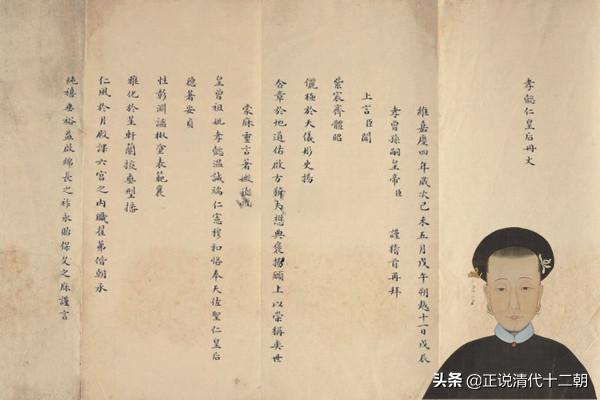 孝懿仁皇后冊文
維嘉慶四年歲次己未五月戊午朔越十一日戊辰
孝曾孫嗣皇帝臣 謹稽首再拜
上言臣聞
紫宸齊體昭
儷極於天儀彤史揚
合章於地道佑啟方 大懋典褒揚願上以崇稱奕世
蒙庥靈言著媺
皇曾祖妣孝懿溫誠端仁憲穆和恪奉天佐聖仁皇后
德著安貞
性彰淵謐椒塗表範襄
雅化於星軒蘭掖垂型播
仁風於月殿課六宮之內職 偕朝承
純禧垂裕益啟綿長之祚永貽保乂之庥謹言
头条 @正说清代十二朝